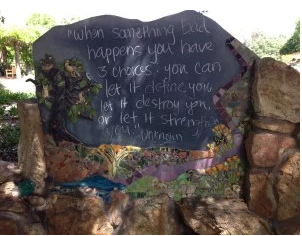 "When something bad
happens you have
3 choices. you can
let it define you,
let it destroy you,
or let it strengthen
you." Unknown